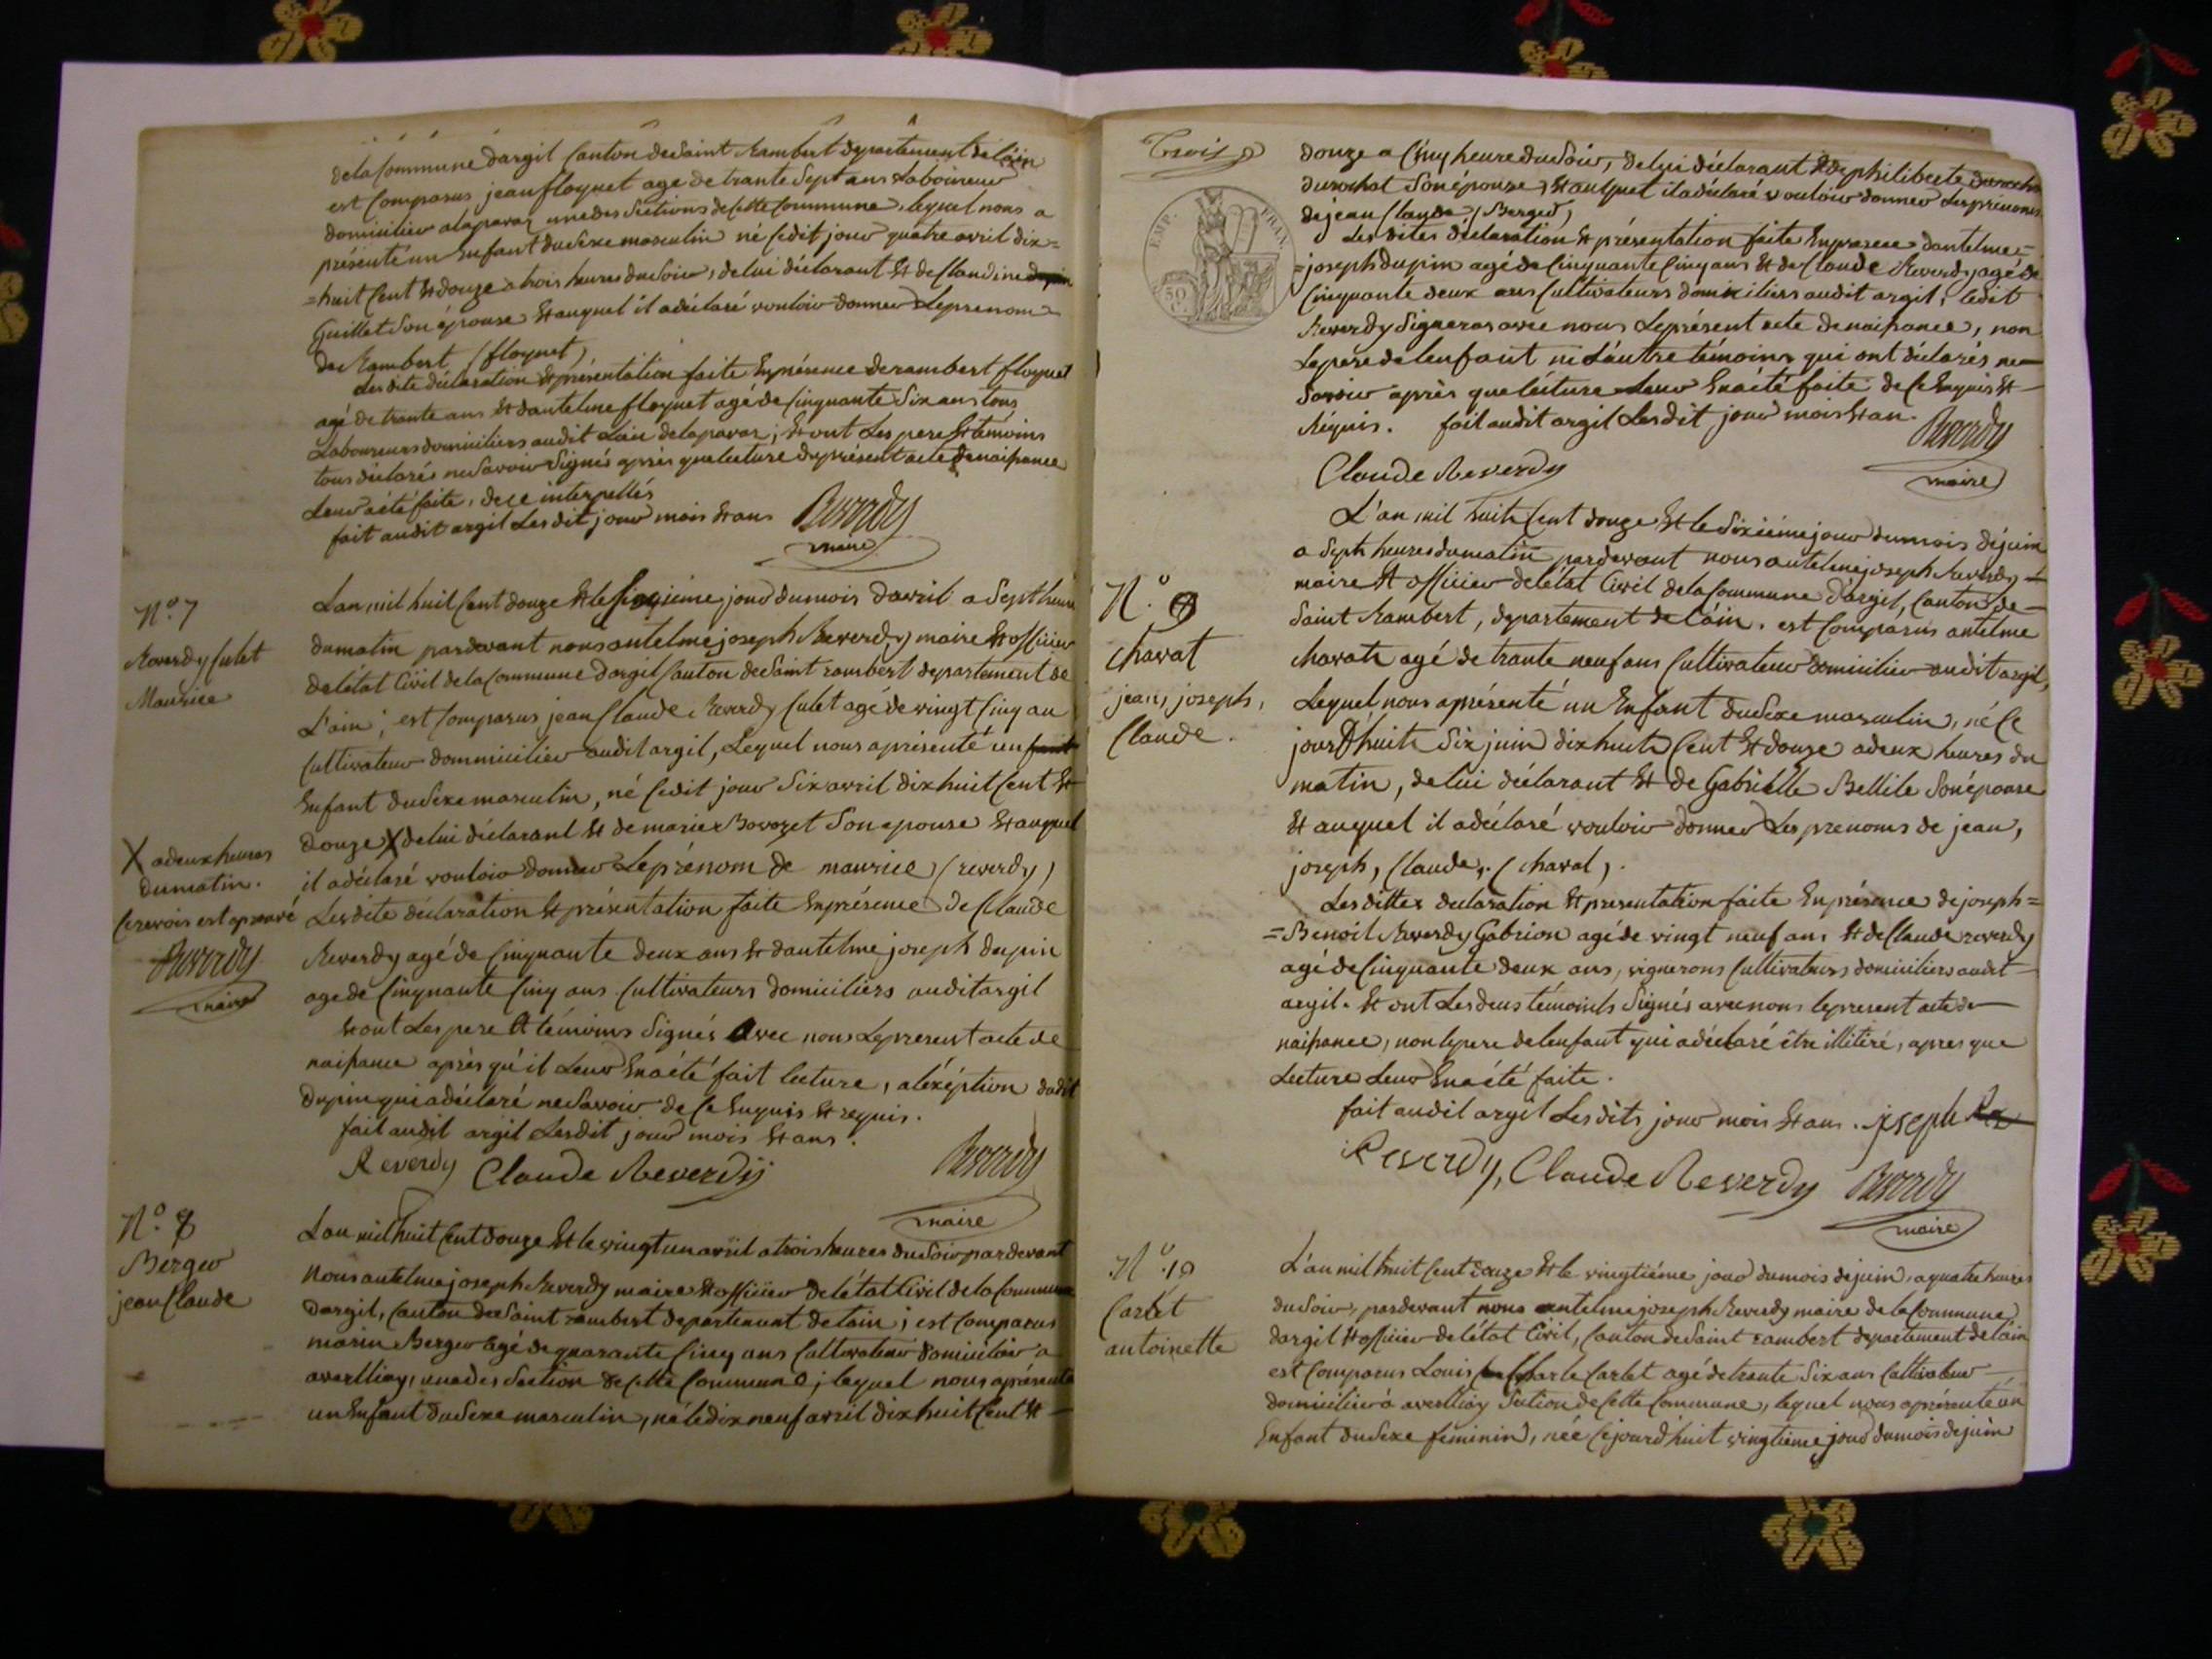 de la Commune dargil Canton de Saint Rambert departement de l'ain
est Comparus jean floquet age de trante Sept ans Laboureur
domicilier a laparaz une des Sections de cette Commune, lequel nous a
présenté un Enfant du Sexe masculin né Cedit jour quatre avril dix=
=huit Cent Et douze a trois heures du Soir, de lui déclarant Et de Claudine
Guillet Son épouse Et auquel il a déclaré vouloir donner Le prenom
de Rambert (floquet)
Les dite déclaration Et présentation faite En présence de rambert floquet
agé de trante ans Et dantelme floquet agé de Cinquante Six ans tous
Laboureurs domiciliers audit Lieu de laparaz ; Et ont Les pere Et témoins
tous déclarés ne Savoir Signés après que lecture du présent acte de naissance
Leur a été faite, de ce interpellés
fait audit argil Les dit jour mois Et ans
Reverdy
maire
N.° 7
Reverdy Culet
Maurice
L'an mil huit Cent douze Et le Sixieme jour du mois d'avril a Sept heure
du matin pardevant nous antelme joseph Reverdy maire Et officier
de létat Civil de la Commune dargil Canton de Saint rambert departement de
L'ain ; est Comparus jean Claude Reverdy Culet agé de vingt Cinq an
Cultivateur dommicilier audit argil, Lequel nous a présenté un
Enfant du Sexe masculin, né Cedit jour Six avril dix huit Cent Et
douze X de lui déclarant Et de marie Bovozet Son epouse Et auquel
X a deux heures
du matin.
Ce renvois est aprouvé
Reverdy
maire
il a déclaré vouloir donner Le prénom de maurice (reverdy)
Les dite déclaration Et présentation faite En présence de Claude
Reverdy agé de Cinquante deux ans Et dantelme joseph dupin
age de Cinquante Cinq ans Cultivateurs domiciliers audit argil
Et ont Les pere Et témoins Signés avec nous Le present acte de
naissance après qu'il Leur En a été fait lecture, a léxéption dudit
dupin qui a déclaré ne Savoir de Ce Enquis Et requis.
fait audit argil Les dit jour mois Et ans.
Reverdy Claude Reverdy Reverdy
maire
N.° 8
Berger
jean Claude
L'an mil huit Cent douze Et le vingt un avril a trois heures du Soir pardevant
Nous antelme joseph Reverdy maire Et officier de létat Civil de la Commune
dargil, Canton de Saint rambert departement de lain ; est Comparus
marin Berger agé de quarante Cinq ans Cultivateur domicilier a
averlliaz, une des Section de Cette Commune ; lequel nous a présenté
un Enfant du Sexe masculin, né le dix neuf avril dix huit Cent Et
Trois
EMP. FRAN.
50
douze a Cinq heure du Soir, de lui déclarant Et de philiberte
durochat Son épouse, Et auquel il a déclaré vouloir donner Les prenoms
de jean Claude (Berger)
Les dites déclaration Et présentation faite En presence dantelme=
=joseph dupin agé de Cinquante Cinq ans Et de Claude Reverdy agé de
Cinquante deux ans Cultivateurs domiciliers audit argil, ledit
Reverdy Signeras avec nous Le présent acte de naissance, non
Le pere de lenfant ni L'autre témoins qui ont déclarés ne
Savoir après que lecture Leur En a été faite de Ce Enquis Et
Réquis. fait audit argil Les dit jour mois Et an.
Claude Reverdy Reverdy
maire
N.° 9
chavat
jean, joseph,
Claude.
L'an mil huit Cent douze Et le Sixiéme jour du mois de juin
a Sept heures du matin pardevant nous antelme joseph Reverdy
maire Et officier de létat Civil de la Commune d'argil, Canton de
Saint Rambert, departement de L'ain. est Comparus antelme
chavat agé de trante neuf ans Cultivateur domicilier audit argil,
Lequel nous a présenté un Enfant du Sexe masculin, né Ce
jourd'huit Six juin dix huit Cent Et douze a deux heures du
matin, de lui déclarant Et de Gabrielle Bellile Son épouse
Et auquel il a déclaré vouloir donner Les prenoms de jean,
joseph, Claude, (chavat).
Les dittes declaration Et presentation faite En présence de joseph=
=Benoit Reverdy Gabrion agé de vingt neuf ans Et de Claude reverdy
agé de Cinquante deux ans, vignerons Cultivateurs domiciliers audit
argil. Et ont Les deus témoins Signés avec nous le present acte de
naissance, non le pere de lenfant qui a déclaré être illitéré, apres que
Lecture Leur En a été faite.
fait audit argil Les dits jour mois Et ans. joseph
Reverdy, Claude Reverdy Reverdy
maire
N.° 10
Carlet
antoinette
L'an mil huit Cent douze Et le vingtiéme jour du mois de juin, a quatre heures
du Soir, pardevant nous antelme joseph Reverdy maire de la Commune
dargil Et officier de létat Civil, Canton de Saint rambert departement de lain
est Comparus Louis Charle Carlet agé de trante Six ans Cultivateur
domicilier a averlliaz Section de Cette Commune, lequel nous a présenté un
Enfant du Sexe féminin, née Cejourd'huit vingtieme jour du mois de juin